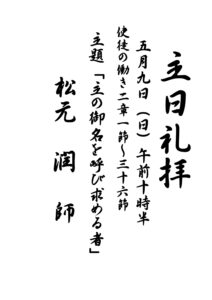 主日礼拝
五月九日（日）午前十時半
使徒の働き二章一節～三十六節
主題「主の御名を呼び求める者」
松元　潤　師